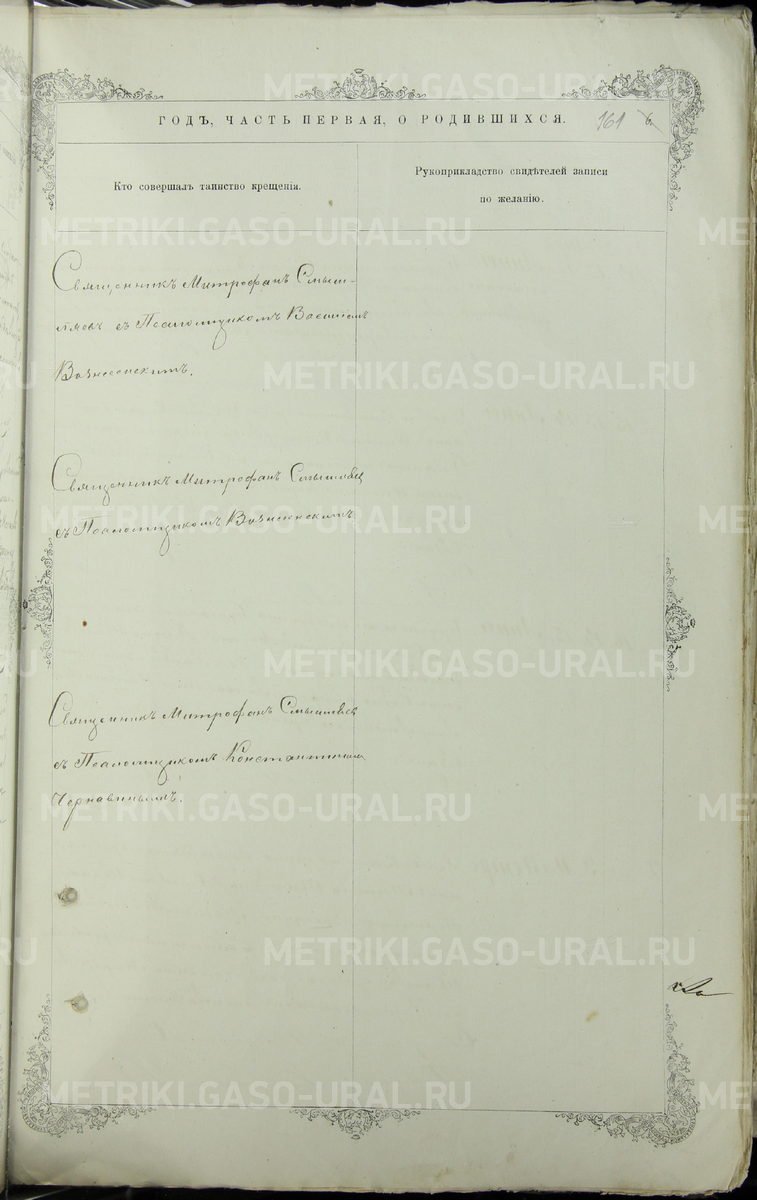 ГОДЪ, ЧАСТЬ ПЕРВАЯ, О РОДИВШИХСЯ. 161 6.
Кто совершалъ таинство крещенія.
Рукоприкладство свидѣтелей записи
по желанію.
Священникъ Митрофанъ Смыш-
ляевъ съ Псаломщикомъ Василіемъ
Вознесенскимъ.
Священникъ Митрофанъ
съ Псаломщикомъ Вознесенскимъ
Священникъ Митрофанъ
съ Псаломщикомъ Константиномъ
Чернавинымъ.
METRIKI.GASO-URAL.RU